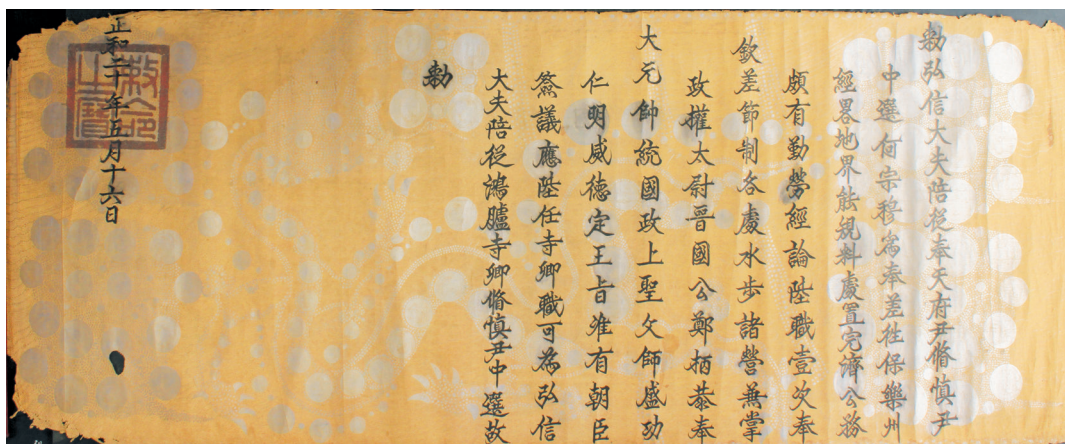 勑弘信大夫陪從奉天府尹脩慎尹
中選何宗穆爲奉差往保樂州
經畧地界能規料處置完濟公務
頗有勤勞經論陞職壹次奉
欽差節制各處水步諸營兼掌
政權太尉晋國公鄭柄恭奉
大元帥統國政上聖父師盛功
仁明威德定王旨准有朝臣
僉議應陞任寺卿職可為弘信
大夫陪從鴻臚寺卿脩慎尹中選故
勑
正和二十年五月十六日
敕命之寶